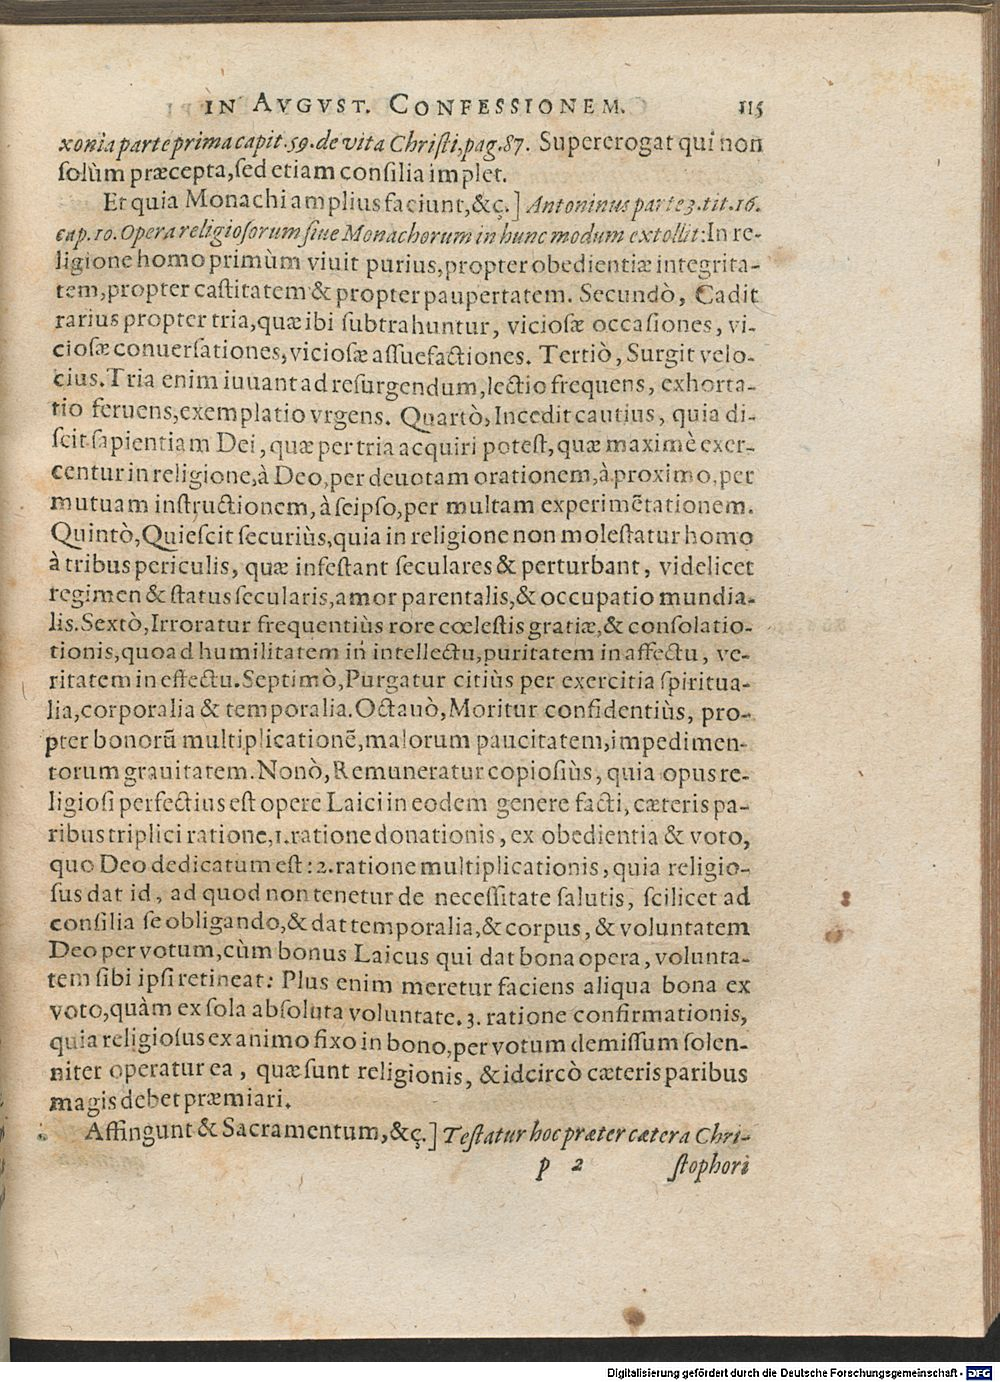 IN AVGVST. CONFESSIONEM. 115
xonia parte prima capit.59.de vita Christi,pag.87. Supererogat qui non
solùm præcepta,sed etiam consilia implet.
Et quia Monachi amplius faciunt,&ç.] Antoninus parte 3.tit.16.
cap.10.Opera religiosorum siue Monachorum in hunc modum extollit:In re-
ligione homo primùm viuit purius,propter obedientiæ integrita-
tem,propter castitatem & propter paupertatem. Secundò, Cadit
rarius propter tria,quæ ibi subtrahuntur, viciosæ occasiones, vi-
ciosæ conuersationes,viciosæ assuefactiones. Tertiò, Surgit velo-
cius.Tria enim iuuant ad resurgendum,lectio frequens, exhorta-
tio feruens,exemplatio vrgens. Quartò,Incedit cautius, quia di-
scit sapientiam Dei, quæ per tria acquiri potest,quæ maximè exer-
centur in religione,à Deo,per deuotam orationem,à proximo,per
mutuam instructionem, à seipso,per multam experimẽtationem.
Quintò,Quiescit securiùs,quia in religione non molestatur homo
à tribus periculis, quæ infestant seculares & perturbant, videlicet
regimen & status secularis,amor parentalis,& occupatio mundia-
lis.Sextò,Irroratur frequentiùs rore cœlestis gratiæ,& consolatio-
tionis,quoad humilitatem in intellectu,puritatem in affectu, ve-
ritatem in effectu.Septimò,Purgatur citiùs per exercitia spiritua-
lia,corporalia & temporalia.Octauò,Moritur confidentiùs, pro-
pter bonorũ multiplicationẽ,malorum paucitatem,impedimen-
torum grauitatem.Nonò,Remuneratur copiosiùs, quia opus re-
ligiosi perfectius est opere Laici in eodem genere facti, cæteris pa-
ribus triplici ratione,1.ratione donationis, ex obedientia & voto,
quo Deo dedicatum est: 2.ratione multiplicationis, quia religio-
sus dat id, ad quod non tenetur de necessitate salutis, scilicet ad
consilia se obligando,& dat temporalia,& corpus, & voluntatem
Deo per votum,cùm bonus Laicus qui dat bona opera, volunta-
tem sibi ipsi retineat: Plus enim meretur faciens aliqua bona ex
voto,quàm ex sola absoluta voluntate.3. ratione confirmationis,
quia religiosus ex animo fixo in bono,per votum demissum solen-
niter operatur ea, quæ sunt religionis, & idcircò cæteris paribus
magis debet præmiari.
Affingunt & Sacramentum,&ç.] Testatur hoc præter cætera Chri-
p 2 stophori
Digitalisierung gefördert durch die Deutsche Forschungsgemeinschaft - DFG